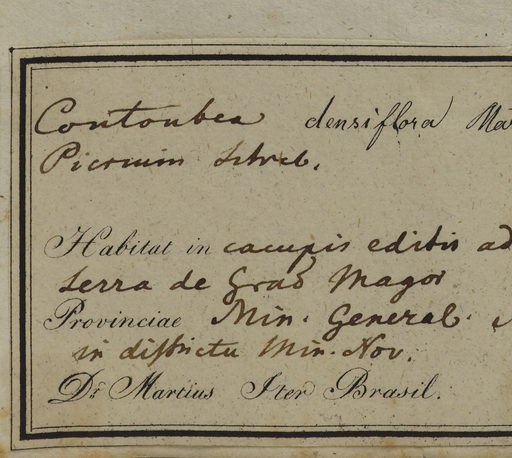 Coutoubea densiflora Ma
Picrium Schreb.
Habitat in campis editis ad
Serra de Grao Magor
Provinciae Min. General.
in districtu Min. Nov.
Dr. Martius Iter Brasil.